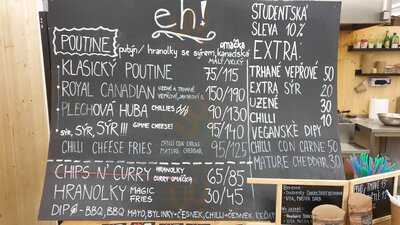 eh!
POUTINE
putýn/ hranolky se sýrem, omáčka kanadská
MALÝ/VELKÝ
KLASICKÝ POUTINE 75/115
ROYAL CANADIAN UZENÉ A TRHANÉ VEPŘOVÉ, 150/190
PLECHOVÁ HUBA CHILLIES 90/130
SÝR, SÝR, SÝR!!! GIMME CHEESE! 95/140
CHILLI CHEESE FRIES CHILLI CON CARNE MATURE CHEDDAR 95/125
CHIPS N' CURRY HRANOLKY CURRY OMÁČKA 65/85
HRANOLKY MAGIC FRIES 30/45
DIP - BBQ, BBQ MAYO, BYLINKY+ČESNEK, CHILLI+ČESNEK, KEČUP
STUDENTSKÁ
SLEVA 10%
EXTRA:
TRHANÉ VEPŘOVÉ 50
EXTRA SÝR 20
UZENÉ 30
CHILLI 10
VEGANSKÉ DIPY
CHILLI CON CARNE 50
MATURE CHEDDAR 30